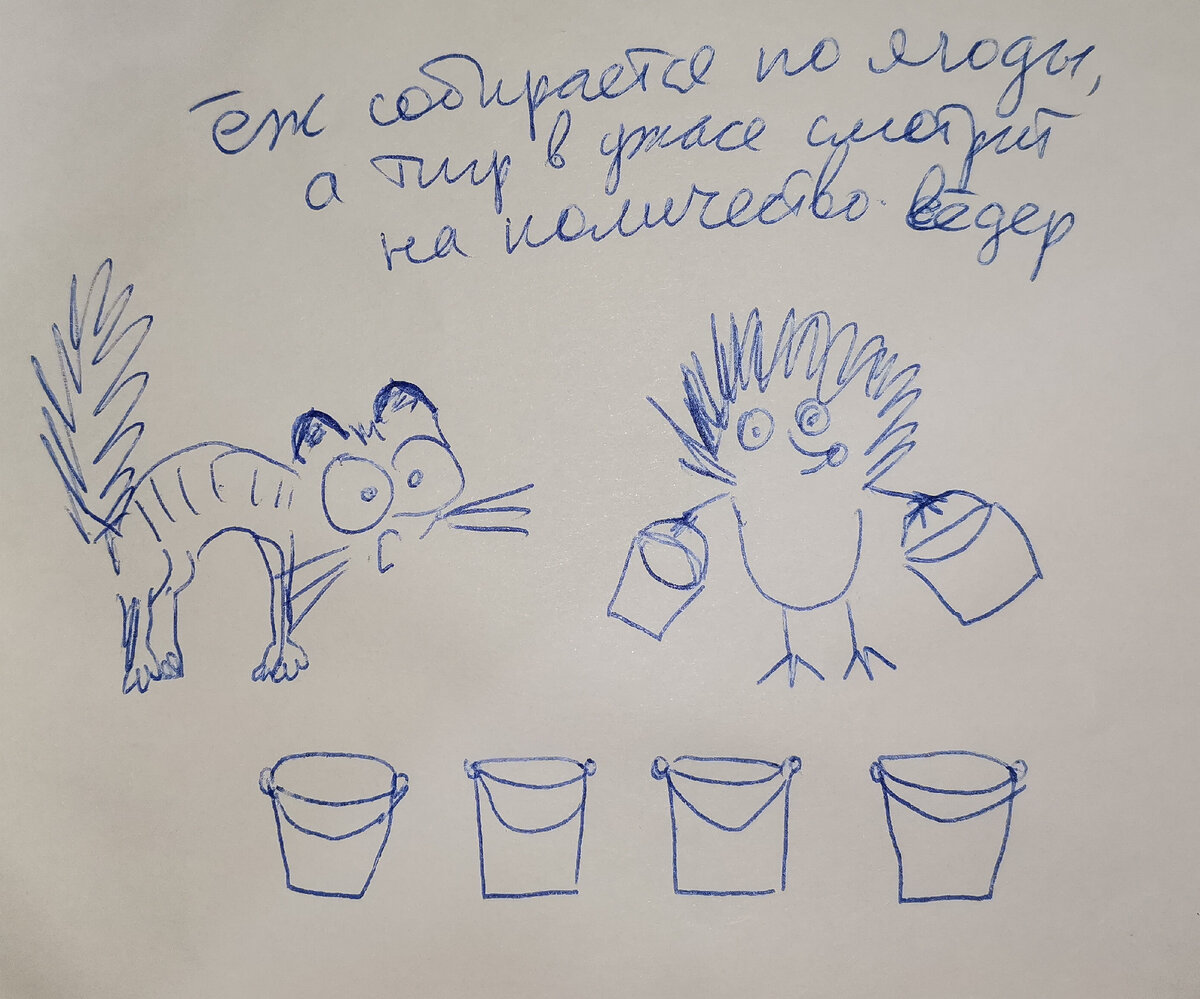 ёж собирается по ягоды,
а тигр в ужасе смотрит
на количество вёдер